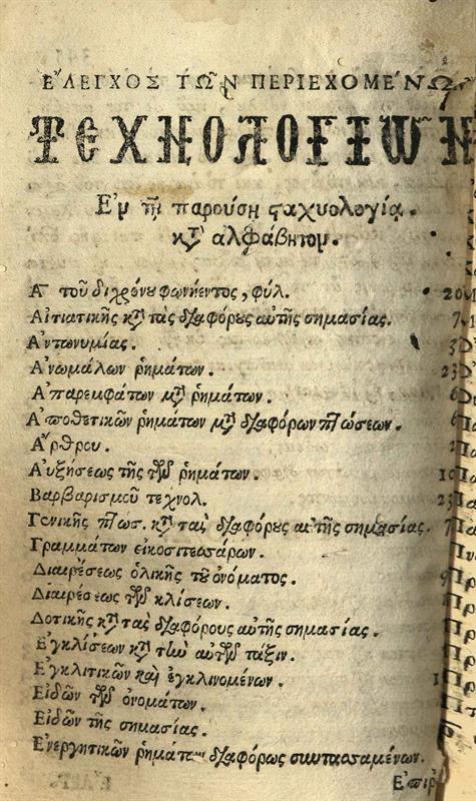 ΕΛΕΓΧΟΣ ΤΩ͂Ν ΠΕΡΙΕΧΟΜΕ´ΝΩ
ΤΕΧΝΟΛΟΓΙΩ͂Ν
Ἐν τῇ παρούσῃ ϛαχυολογίᾳ.
κτ̀ ἀλφάβητον.
Α τοῦ διχρόνου φωνήεντος, φύλ.
Αἰτιατικῆς κτ̀ τὰς διαφόρους αὐτῆς σημασίας. 7
Ἀντωνυμίας. 3
Ἀνωμάλων ῥημάτων. 23
Ἀπαρεμφάτων μτ̀ ῥημάτων. 6
Ἀποθετικῶν ῥημάτων μτ̀ διαφόρων πτώσεων. 6
Ἄρθρου.
Αὐξήσεως τῆς τῶν ῥημάτων.
Βαρβαρισμοῦ τεχνολ. 23
Γενικῆς πτώσ. κτ̀ τὰς διαφόρους αὐτῆς σημασίας. 7
Γραμμάτων εἰκοσιτεσσάρων.
Διαιρέσεως ὁλικῆς τοῦ ὀνόματος.
Διαιρέσεως τῶν κλίσεων.
Δοτικῆς κτ̀ τὰς διαφόρους αὐτῆς σημασίας.
Ἐγκλίσεων κτ̀ τὴν αὐτῶν τάξιν.
Ἐγκλιτικῶν καὶ ἐγκλινομένων.
Εἰδῶν τῶν ὀνομάτων.
Εἰδῶν τῆς σημασίας.
Ἐνεργητικῶν ῥημάτων διαφόρως συντασσαμένων.
Ἐπιρ